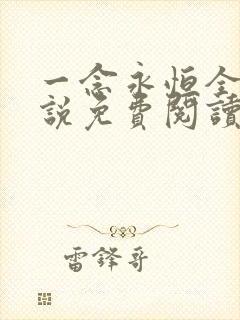 一念永恒全
説免費閱讀
雷鋒哥